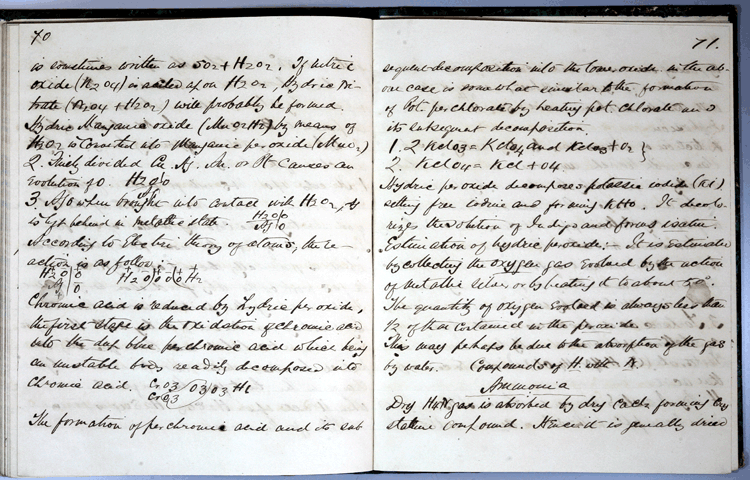 70
is sometimes written as SO2 + H2O2. If nitric
oxide (N2O4) is acted upon H2O2, Hydric Ni-
trate (N2O4 + H2O2) will probably be formed.
Hydric Manganic oxide (MnO2H2) by means of
H2O2 is converted into Manganic peroxide (MnO2)
2. Finely divided Ag. or Pt Causes an
Evolution of O. H2O|O
3. AgO when brought into contact with H2O2, Ag
is left behind in metallic state. H2O|O Ag|O
According to Electric theory of atoms, the re-
action is as follow:-
Chromic acid is reduced by Hydric peroxide,
the first steps is the oxidation of chromic acid
into the deep blue perchromic acid which being
an unstable body readily decomposed into
Chromic acid. CrO3 CrO3
The formation of perchromic acid and its sub
71.
sequent decomposition into the oxide in the ab-
ove case is somewhat similar to the formation
of Pot. perchlorate by heating pot. chlorate and
its subsequent decomposition.
1. 2 KClO3 = KClO4 and KClO3 + O2 }
2. KClO4 = KCl + O4
Hydric peroxide decomposes potassic iodide (KI)
setting free iodine and forming KHO. It decolo-
rizes the solution of Indigo and forms isatin.
Estimation of hydric peroxide:- It is estimated
by collecting the oxygen gas evolved by the action
of metallic silver or by heating it to about 50°
The quantity of oxygen evolved is always less than
1/2 of that contained in the peroxide.
This may perhaps be due to the absorption of the gas
by water. Compounds of H with N.
Ammonia
Dry gas is absorbed by dry CaCl2 forming cry
stalline compound. Hence it is generally dried